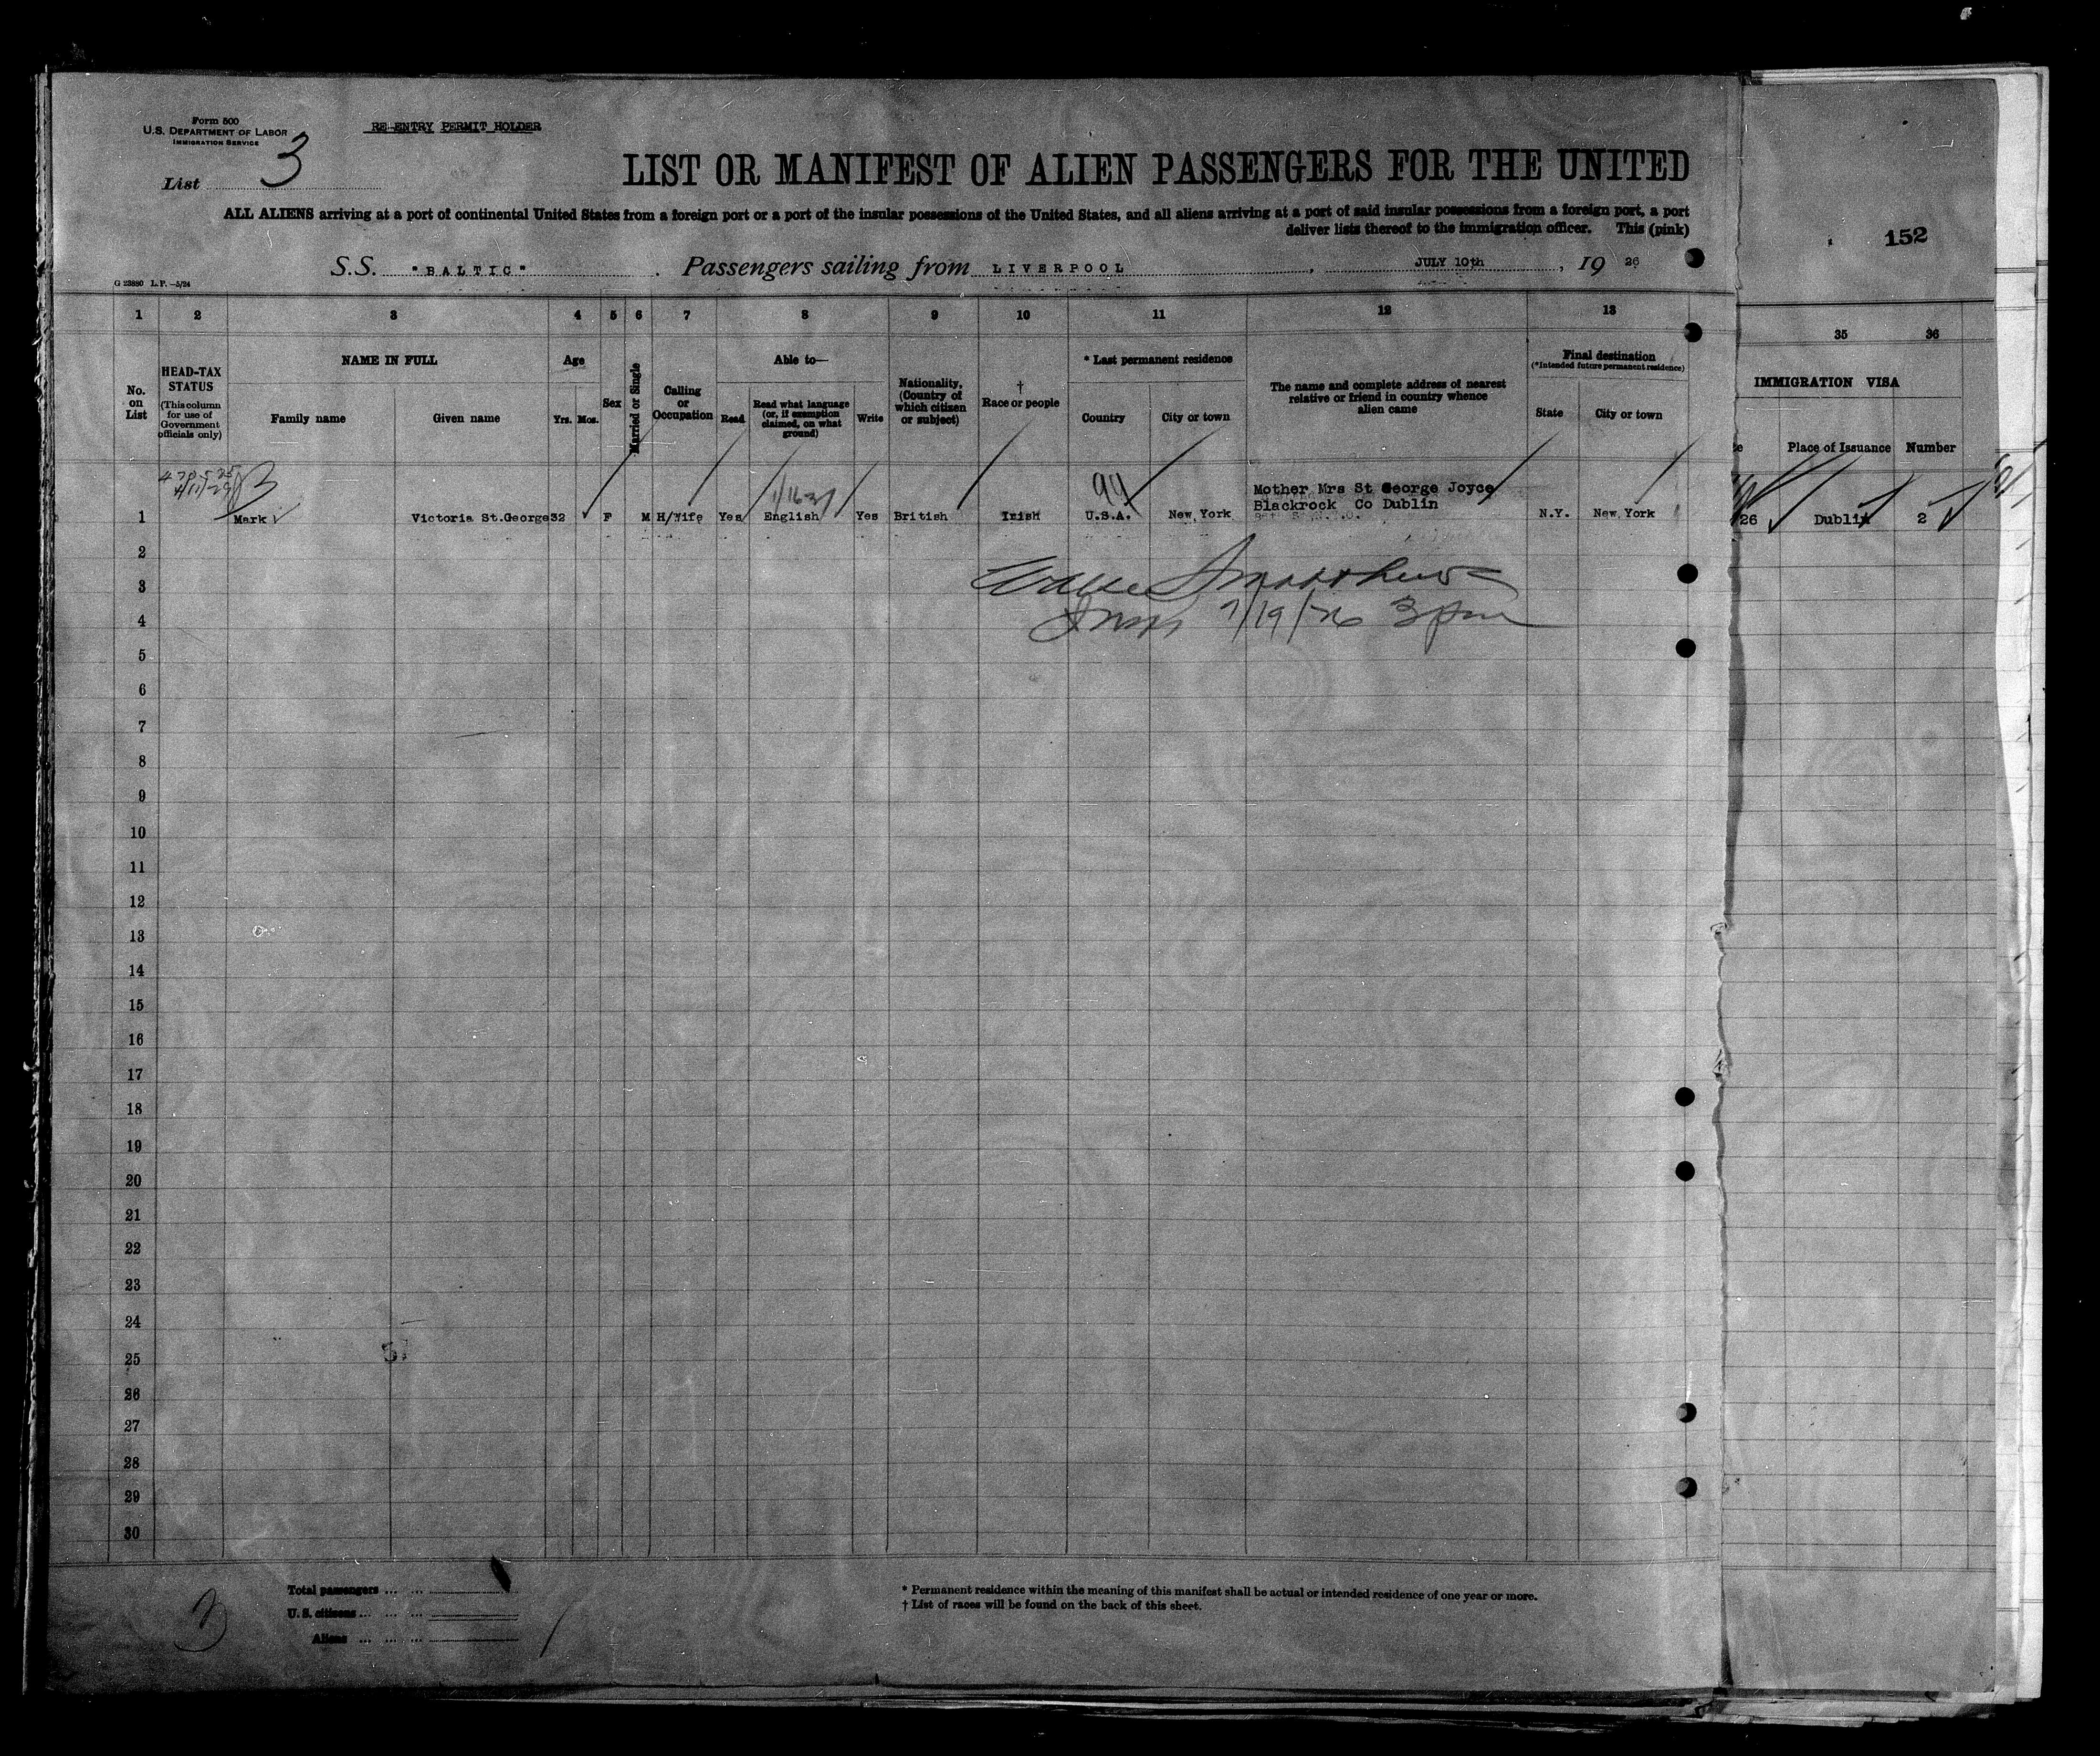 Form 500
U.S. DEPARTMENT OF LABOR
IMMIGRATION SERVICE
RE-ENTRY PERMIT HOLDER
List 3
LIST OR MANIFEST OF ALIEN PASSENGERS FOR THE UNITED
ALL ALIENS arriving at a port of continental United States from a foreign port or a port of the insular possessions of the United States, and all aliens arriving at a port of said insular possessions from a foreign port, a port
deliver lists thereof to the immigration officer. This (pink)
152
S.S. "BALTIC" . Passengers sailing from LIVERPOOL , JULY 10th , 19 26
G 23880 L.P. —5/24
1 2 3 4 5 6 7 8 9 10 11 12 13 35 36
No. on List
HEAD-TAX STATUS
(This column for use of Government officials only)
NAME IN FULL
Family name
Given name
Age
Yrs. Mos.
Sex
Married or Single
Calling or Occupation
Able to—
Read
Read what language (or, if exemption claimed, on what ground)
Write
Nationality, (Country of which citizen or subject)
† Race or people
* Last permanent residence
Country
City or town
The name and complete address of nearest relative or friend in country whence alien came
Final destination
(*Intended future permanent residence)
State
City or town
IMMIGRATION VISA
Place of Issuance
Number
94
Mother Mrs St George Joyce
Blackrock Co Dublin
1 Mark Victoria St.George 32 F M H/Wife Yes English Yes British Irish U.S.A. New York N.Y. New York 26 Dublin 2
2
3
7/19/26 3 pm
4
5
6
7
8
9
10
11
12
13
14
15
16
17
18
19
20
21
22
23
24
25
26
27
28
29
30
Total passengers ... ...
U.S. citizens ... ... ...
Aliens ... ... ... 1
* Permanent residence within the meaning of this manifest shall be actual or intended residence of one year or more.
† List of races will be found on the back of this sheet.